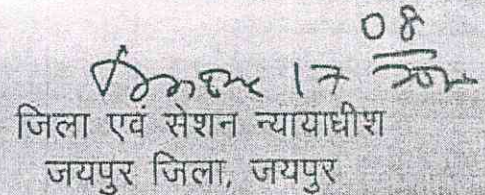 08
17
जिला एवं सेशन न्यायाधीश
जयपुर जिला, जयपुर